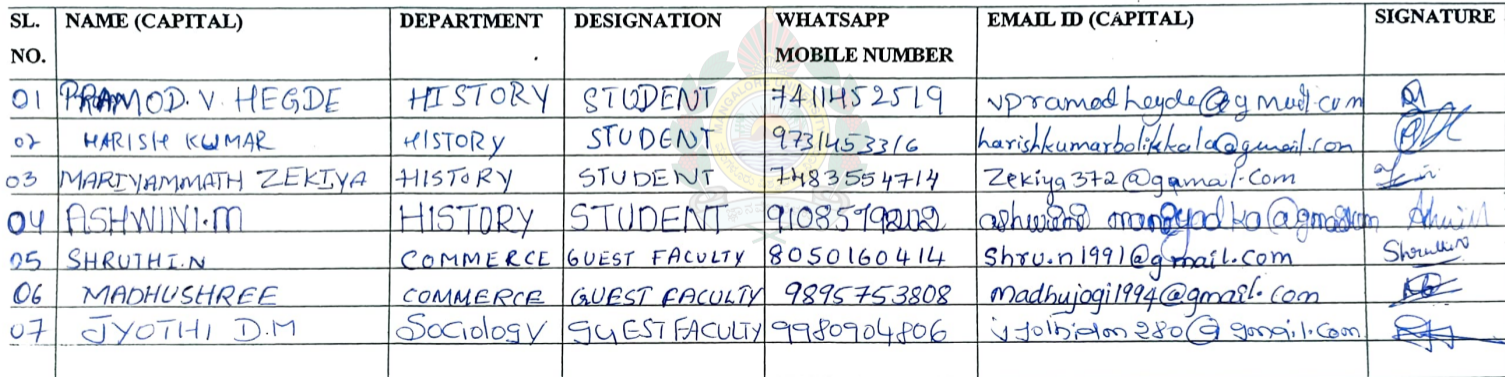 SL. NO. NAME (CAPITAL) DEPARTMENT DESIGNATION WHATSAPP MOBILE NUMBER EMAIL ID (CAPITAL) SIGNATURE
01 PRAMOD. V. HEGDE HISTORY STUDENT 7411452519 vpramodhegde@gmail.com
02 HARISH KUMAR HISTORY STUDENT 9731453316 harishkumarbolikkala@gmail.com
03 MARIYAMMATH ZEKIYA HISTORY STUDENT 7483554714 Zekiya372@gamal.com
04 ASHWINI.M HISTORY STUDENT Ashwini
05 SHRUTHI.N COMMERCE GUEST FACULTY 8050160414 Shru.n1991@gmail.com Shruthi
06 MADHUSHREE COMMERCE GUEST FACULTY 9895753808 madhujogi1994@gmail.com
07 JYOTHI D.M Sociology GUEST FACULTY 9980904806